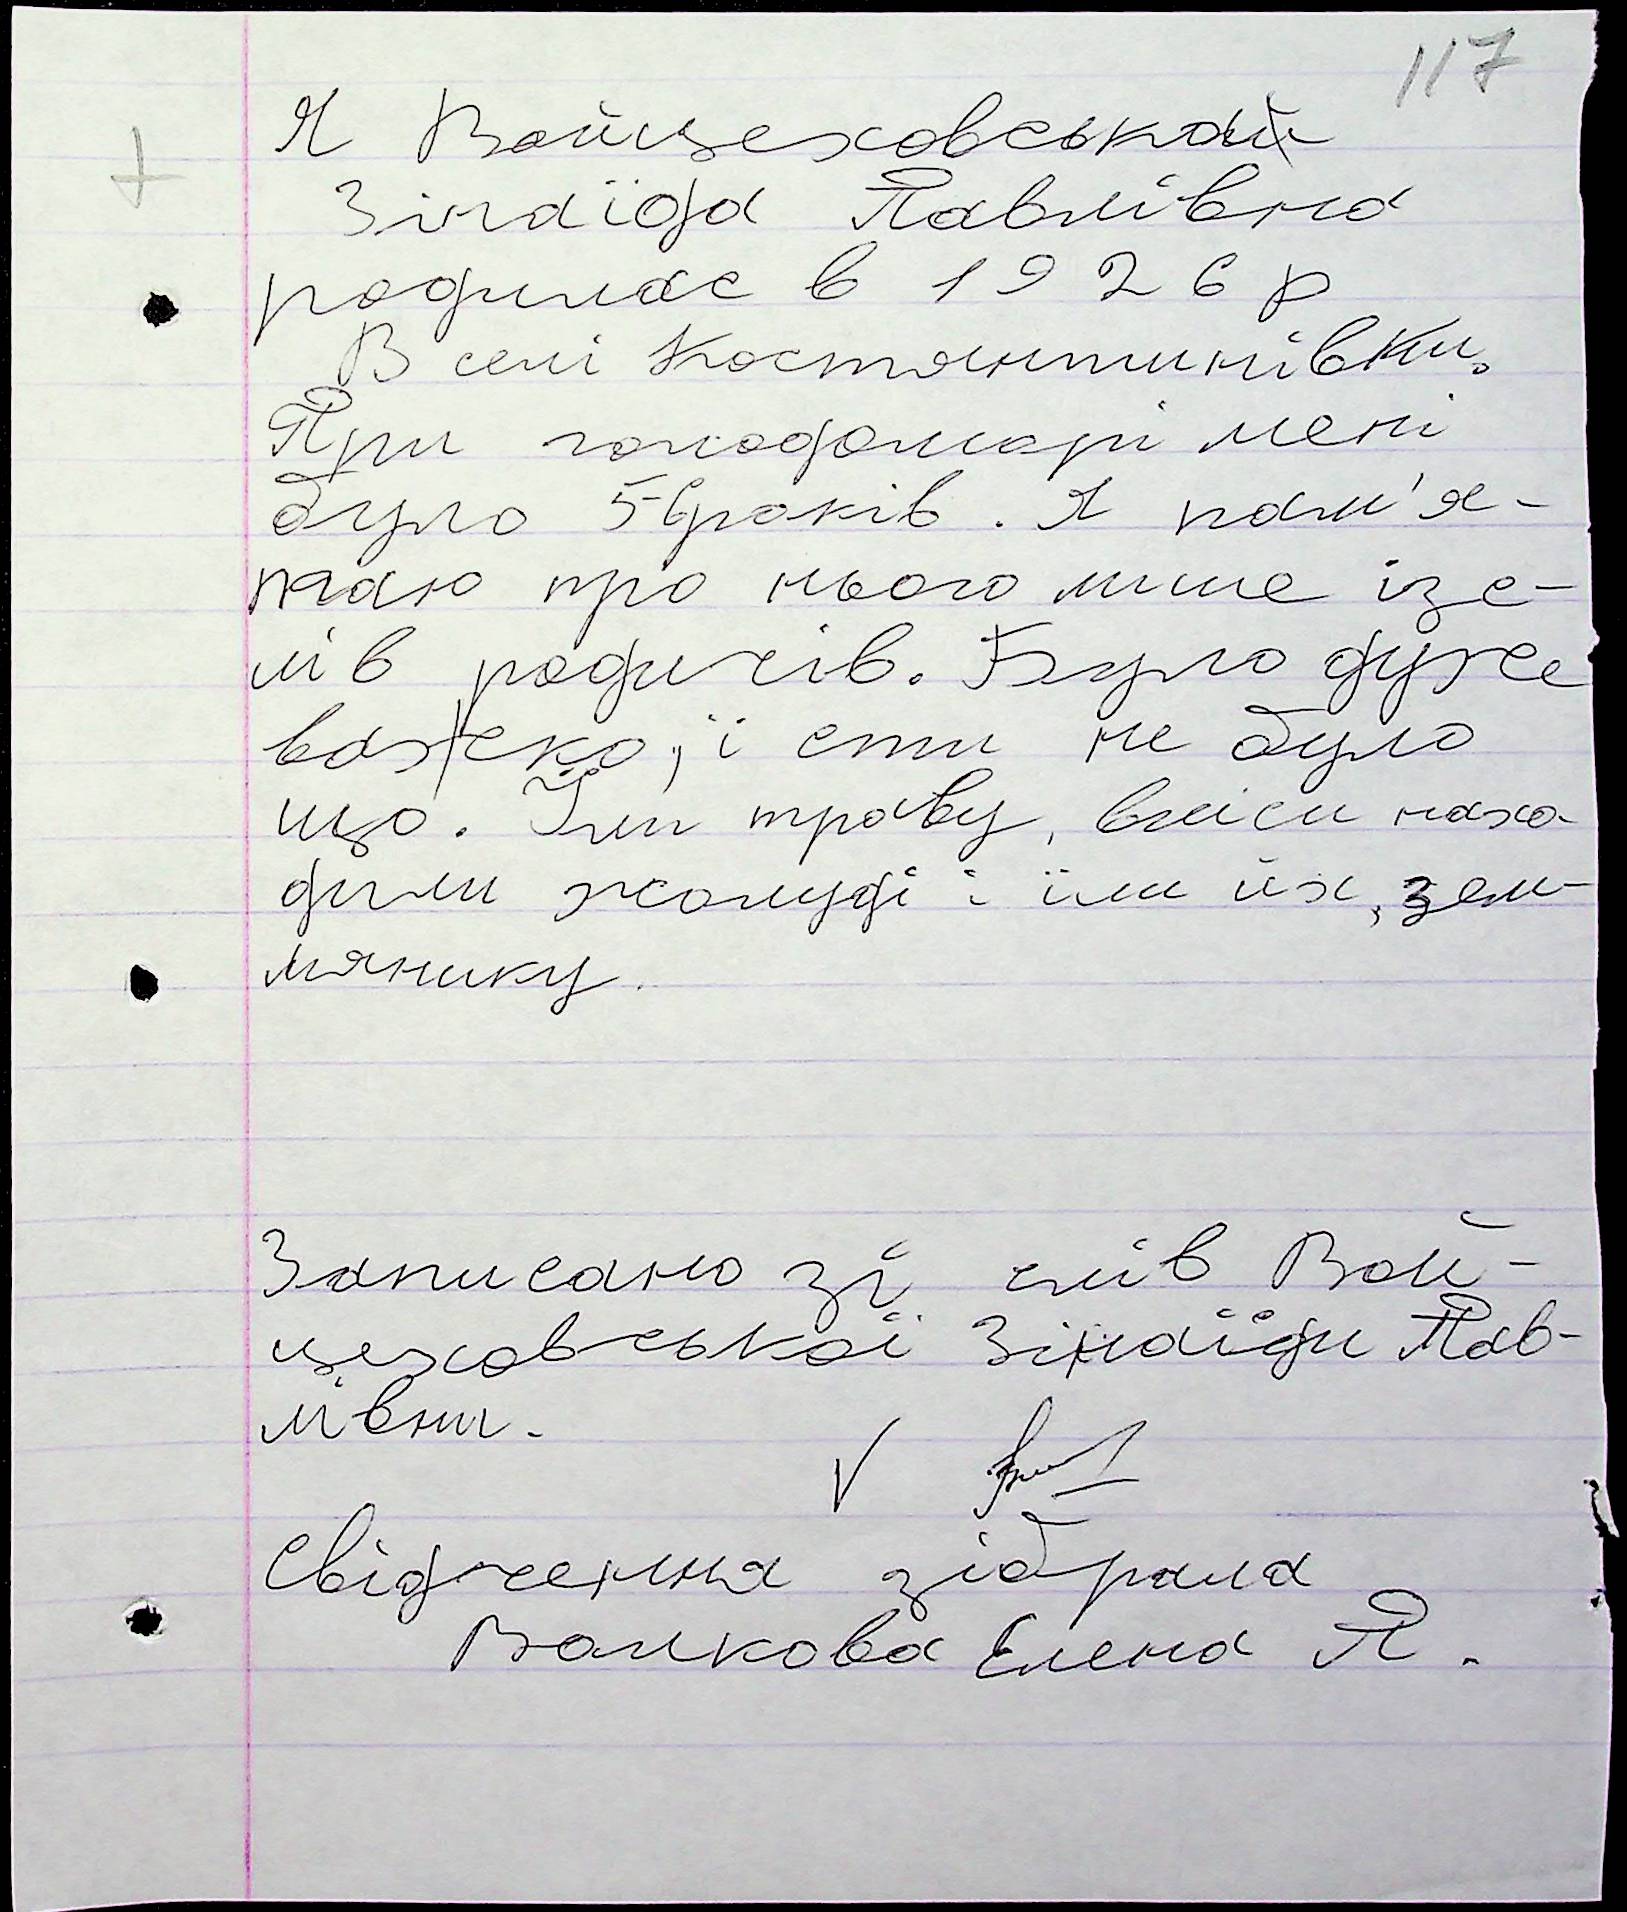 117
Я Войцеховська
Зінаїда Павлівна
родилас в 1926 р
В селі Костянтинівки.
При голодоморі мені
було 5-6 років. Я пам'я-
таю про нього лише із с-
лів родичів. Було дуже
важко, їсти не було
що. Їли траву, в лісі нахо-
дили жолуді і їли їх, зем-
лянику.
Записано зі слів Вой-
цеховської Зінаїди Пав-
лівни.
Свідчення зібрала
Волкова Елена П.